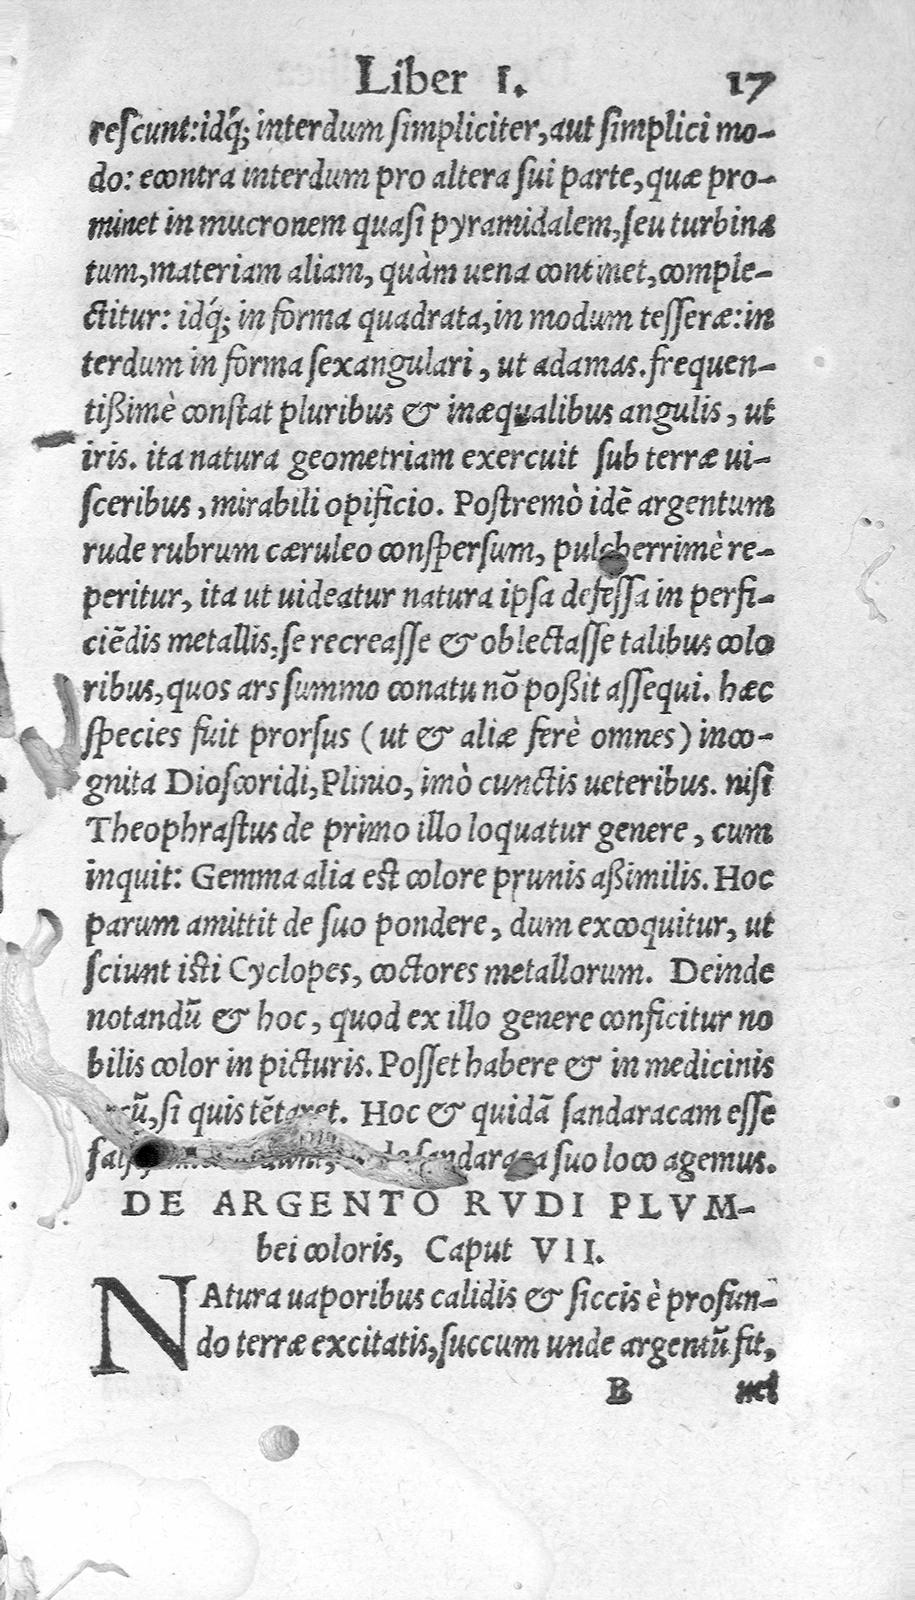 Liber I. 17
reſcunt:idq́; interdum ſimpliciter, aut ſimplici mo-
do: econtra interdum pro altera ſui parte, quæ pro-
minet in mucronem quaſi pyramidalem, ſeu turbina
tum, materiam aliam, quàm uena continet, comple-
ctitur: idq́; in forma quadrata, in modum teſſeræ: in
terdum in forma ſexangulari, ut adamas. frequen-
tißimè conſtat pluribus & inæqualibus angulis, ut
iris. ita natura geometriam exercuit ſub terræ ui-
ſceribus, mirabili opificio. Poſtremò idē argentum
rude rubrum cæruleo conſperſum, pulcherrimè re-
peritur, ita ut uideatur natura ipſa defeſſa in perfi-
ciēdis metallis, ſe recreaſſe & oblectaſſe talibus colo
ribus, quos ars ſummo conatu nō poßit aſſequi. hæc
ſpecies fuit prorſus (ut & aliæ ferè omnes) inco-
gnita Dioſcoridi, Plinio, imò cunctis ueteribus. niſi
Theophraſtus de primo illo loquatur genere, cum
inquit: Gemma alia est colore prunis aßimilis. Hoc
parum amittit de ſuo pondere, dum excoquitur, ut
ſciunt isti Cyclopes, coctores metallorum. Deinde
notandū & hoc, quod ex illo genere conficitur no
bilis color in picturis. Poſſet habere & in medicinis
ſi quis tētaret. Hoc & quidā ſandaracam eſſe
ſandaraca ſuo loco agemus.
DE ARGENTO RVDI PLVM-
bei coloris, Caput VII.
NAtura uaporibus calidis & ſiccis è profun-
do terræ excitatis, ſuccum unde argentū fit,
B uel